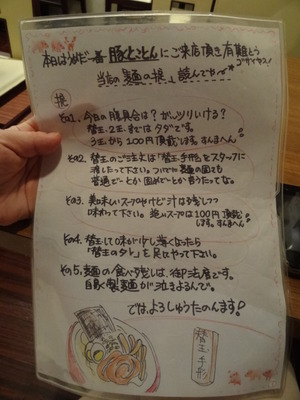 本日はうめだ一番 豚とことんにご来店頂き有難とう
ゴザイマス!
当店の「麺の掟」読んでや〜
掟
その1. 今日の腹具合は?がっツリいける?
替玉、2玉まではタダです。
3玉から100円頂戴します。すんまへん
その2. 替玉のご注文は「替玉手形」をスタッフに
渡したって下さい。ついでに麺の固さも
普通で〜とか固めで〜とか言うたってな。
その3. 美味しいスープやけど汁は残しつつ
味わって下さい。追いスープは100円頂戴
します。すんまへん
その4. 替玉して味が少し薄くなったら
「替玉のタレ」を足してやって下さい。
その5. 麺の食べ残しは、御法度です。
自家製麺が泣きよるんで。
では、よろしゅうたのんます!
替玉手形